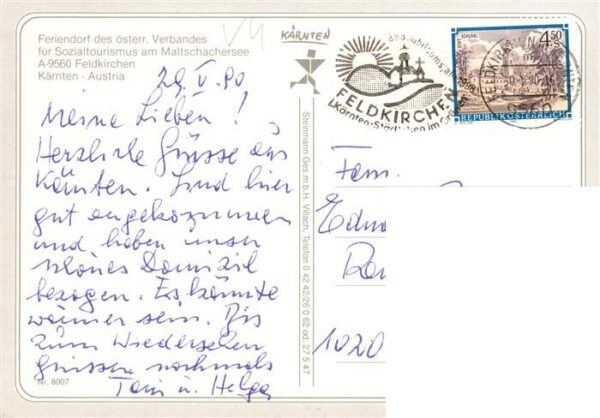 Feriendorf des österr. Verbandes
für Sozialtourismus am Maltschachersee
A-9560 Feldkirchen
Kärnten - Austria
29. V. 90
Meine Lieben!
Herzliche Grüsse aus
Kärnten. Sind hier
gut angekommen
und haben unser
schönes Domizil
bezogen. Es könnte
wärmer sein. Bis
zum Wiedersehen
grüssen nochmals
Toni u. Helga
Nr. 8007
KÄRNTEN
Steinmann Ges.m.b.H. Villach, Telefon 0 42 42/26 0 62 od. 27 5 47
FELDKIRCHEN
i. Kärnten-Städtchen im
4.50
REPUBLIK ÖSTERREICH
9560
Fam.
1020